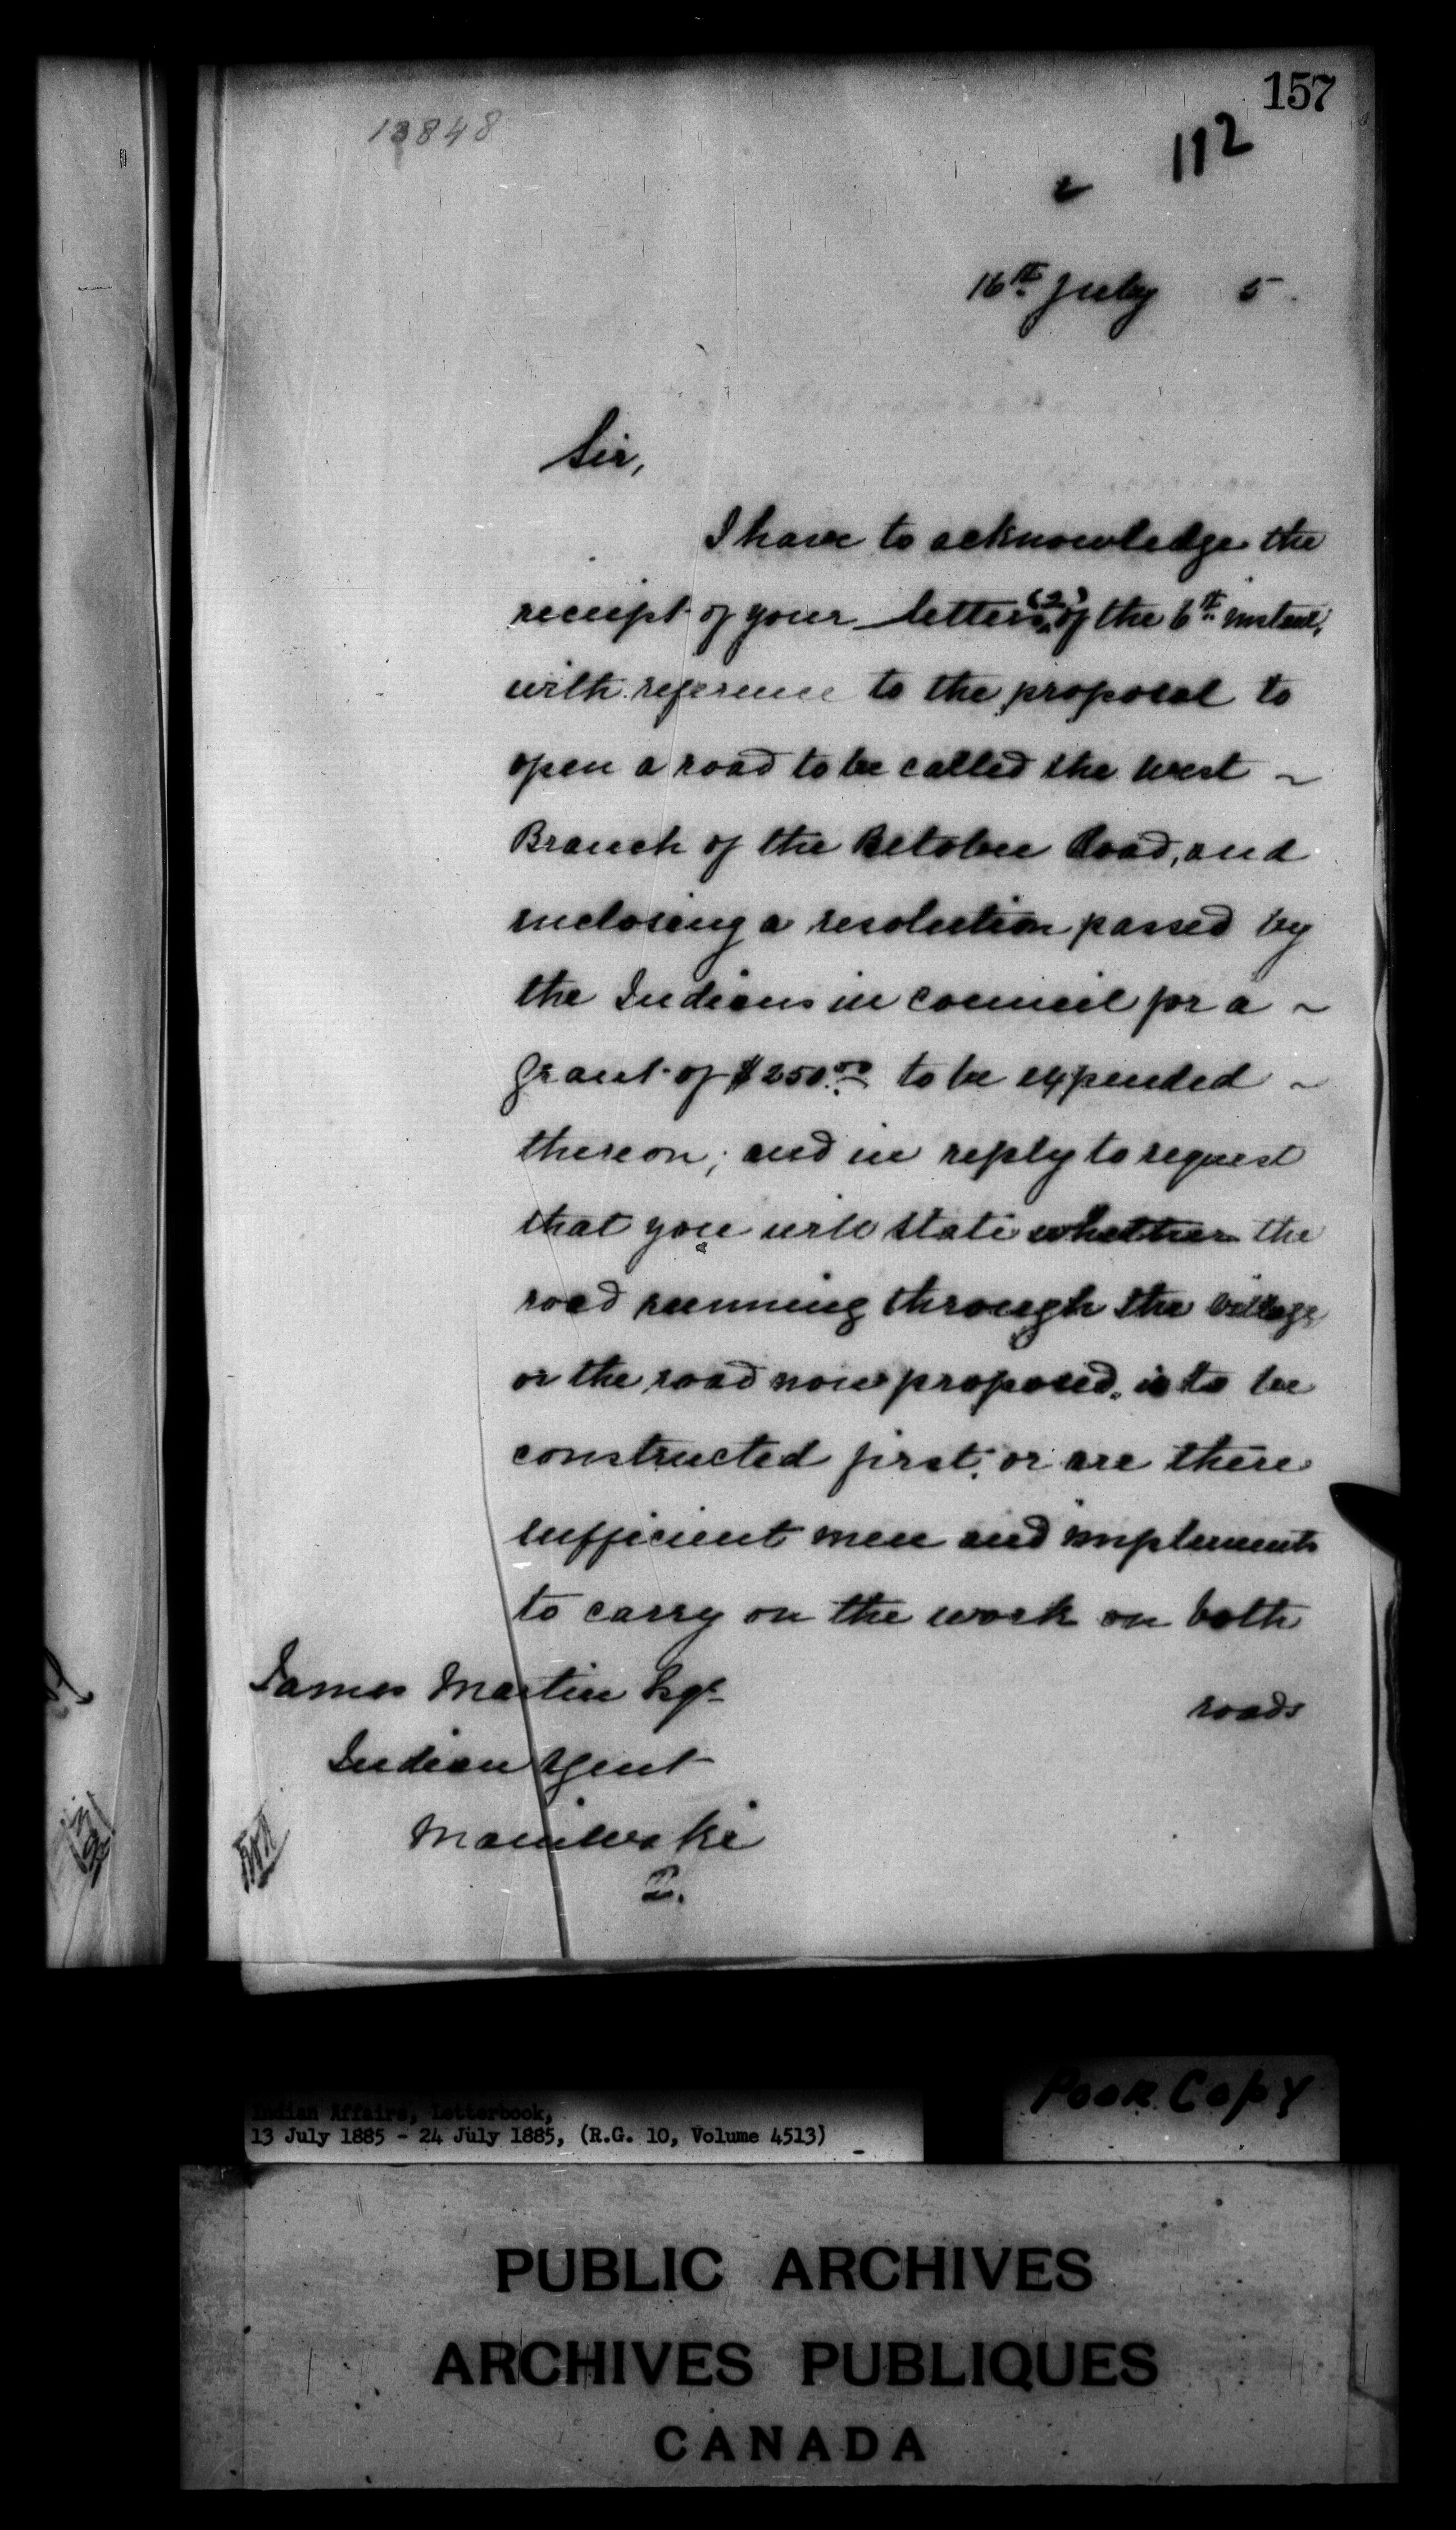 157
13848
112
16th July 5.
Sir,
I have to acknowledge the
receipt of your letters (2) of the 6th instant,
with reference to the proposal to
open a road to be called the West ~
Branch of the Bitobee Road, and
inclosing a resolution passed by
the Indians in Council for a ~
grant of $250.00 to be expended ~
thereon; and in reply to request
that you will state whether the
road running through the village
or the road now proposed, is to be
constructed first, or are there
sufficient men and implements
to carry on the work on both
roads
James Martin Esqr
Indian Agent
Maniwaki
2.
Indian Affairs, Letterbook,
13 July 1885 - 24 July 1885, (R.G. 10, Volume 4513)
Poor Copy
PUBLIC ARCHIVES
ARCHIVES PUBLIQUES
CANADA